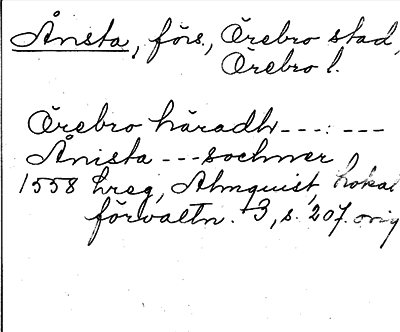 Ånsta, förs., Örebro stad,
Örebro l.
Örebro häradh ---:---
Ånista --- sochner
1558 hreg, Almquist, Lokal
förvaltn. 3, s. 207. orig